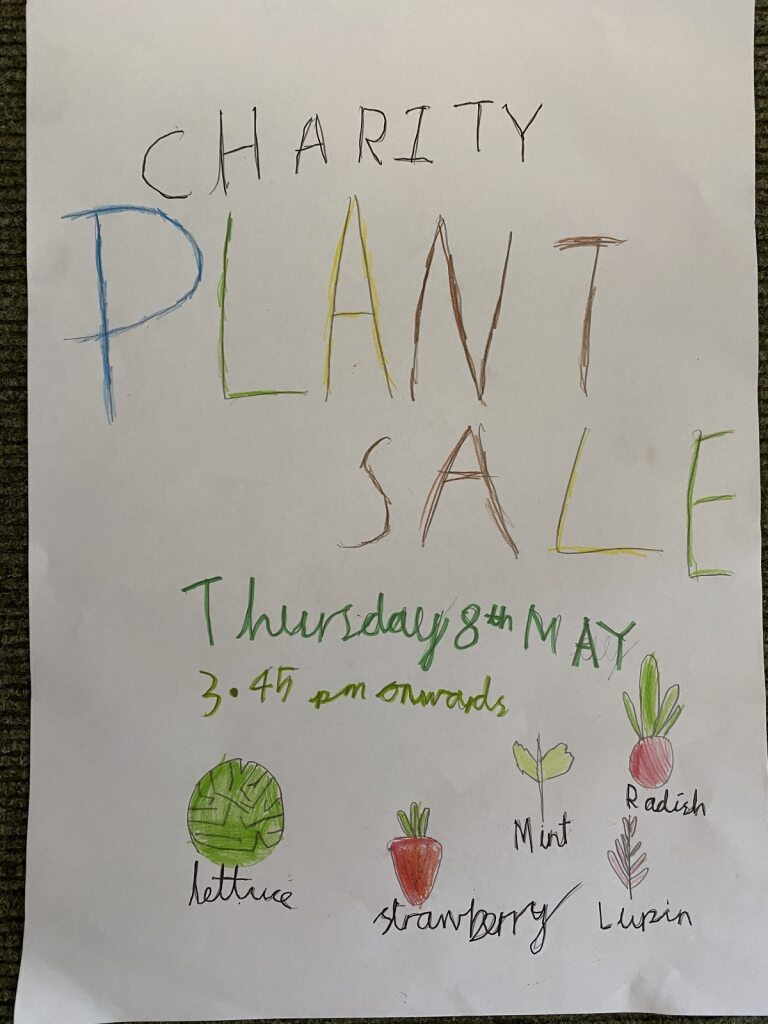 CHARITY
PLANT
SALE
Thursday 8th MAY
3.45 pm onwards
Radish
Mint
lettuce
strawberry
Lupin